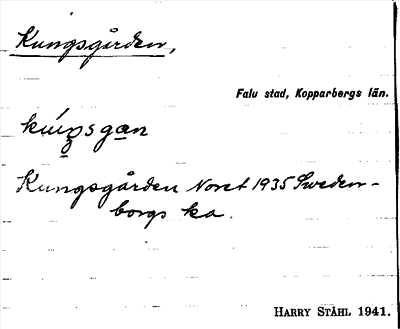 Kungsgården,
Falu stad, Kopparbergs län.
kúŋsgan
Kungsgården Noret 1935 Sweden-
borgs ka.
HARRY STÅHL 1941.